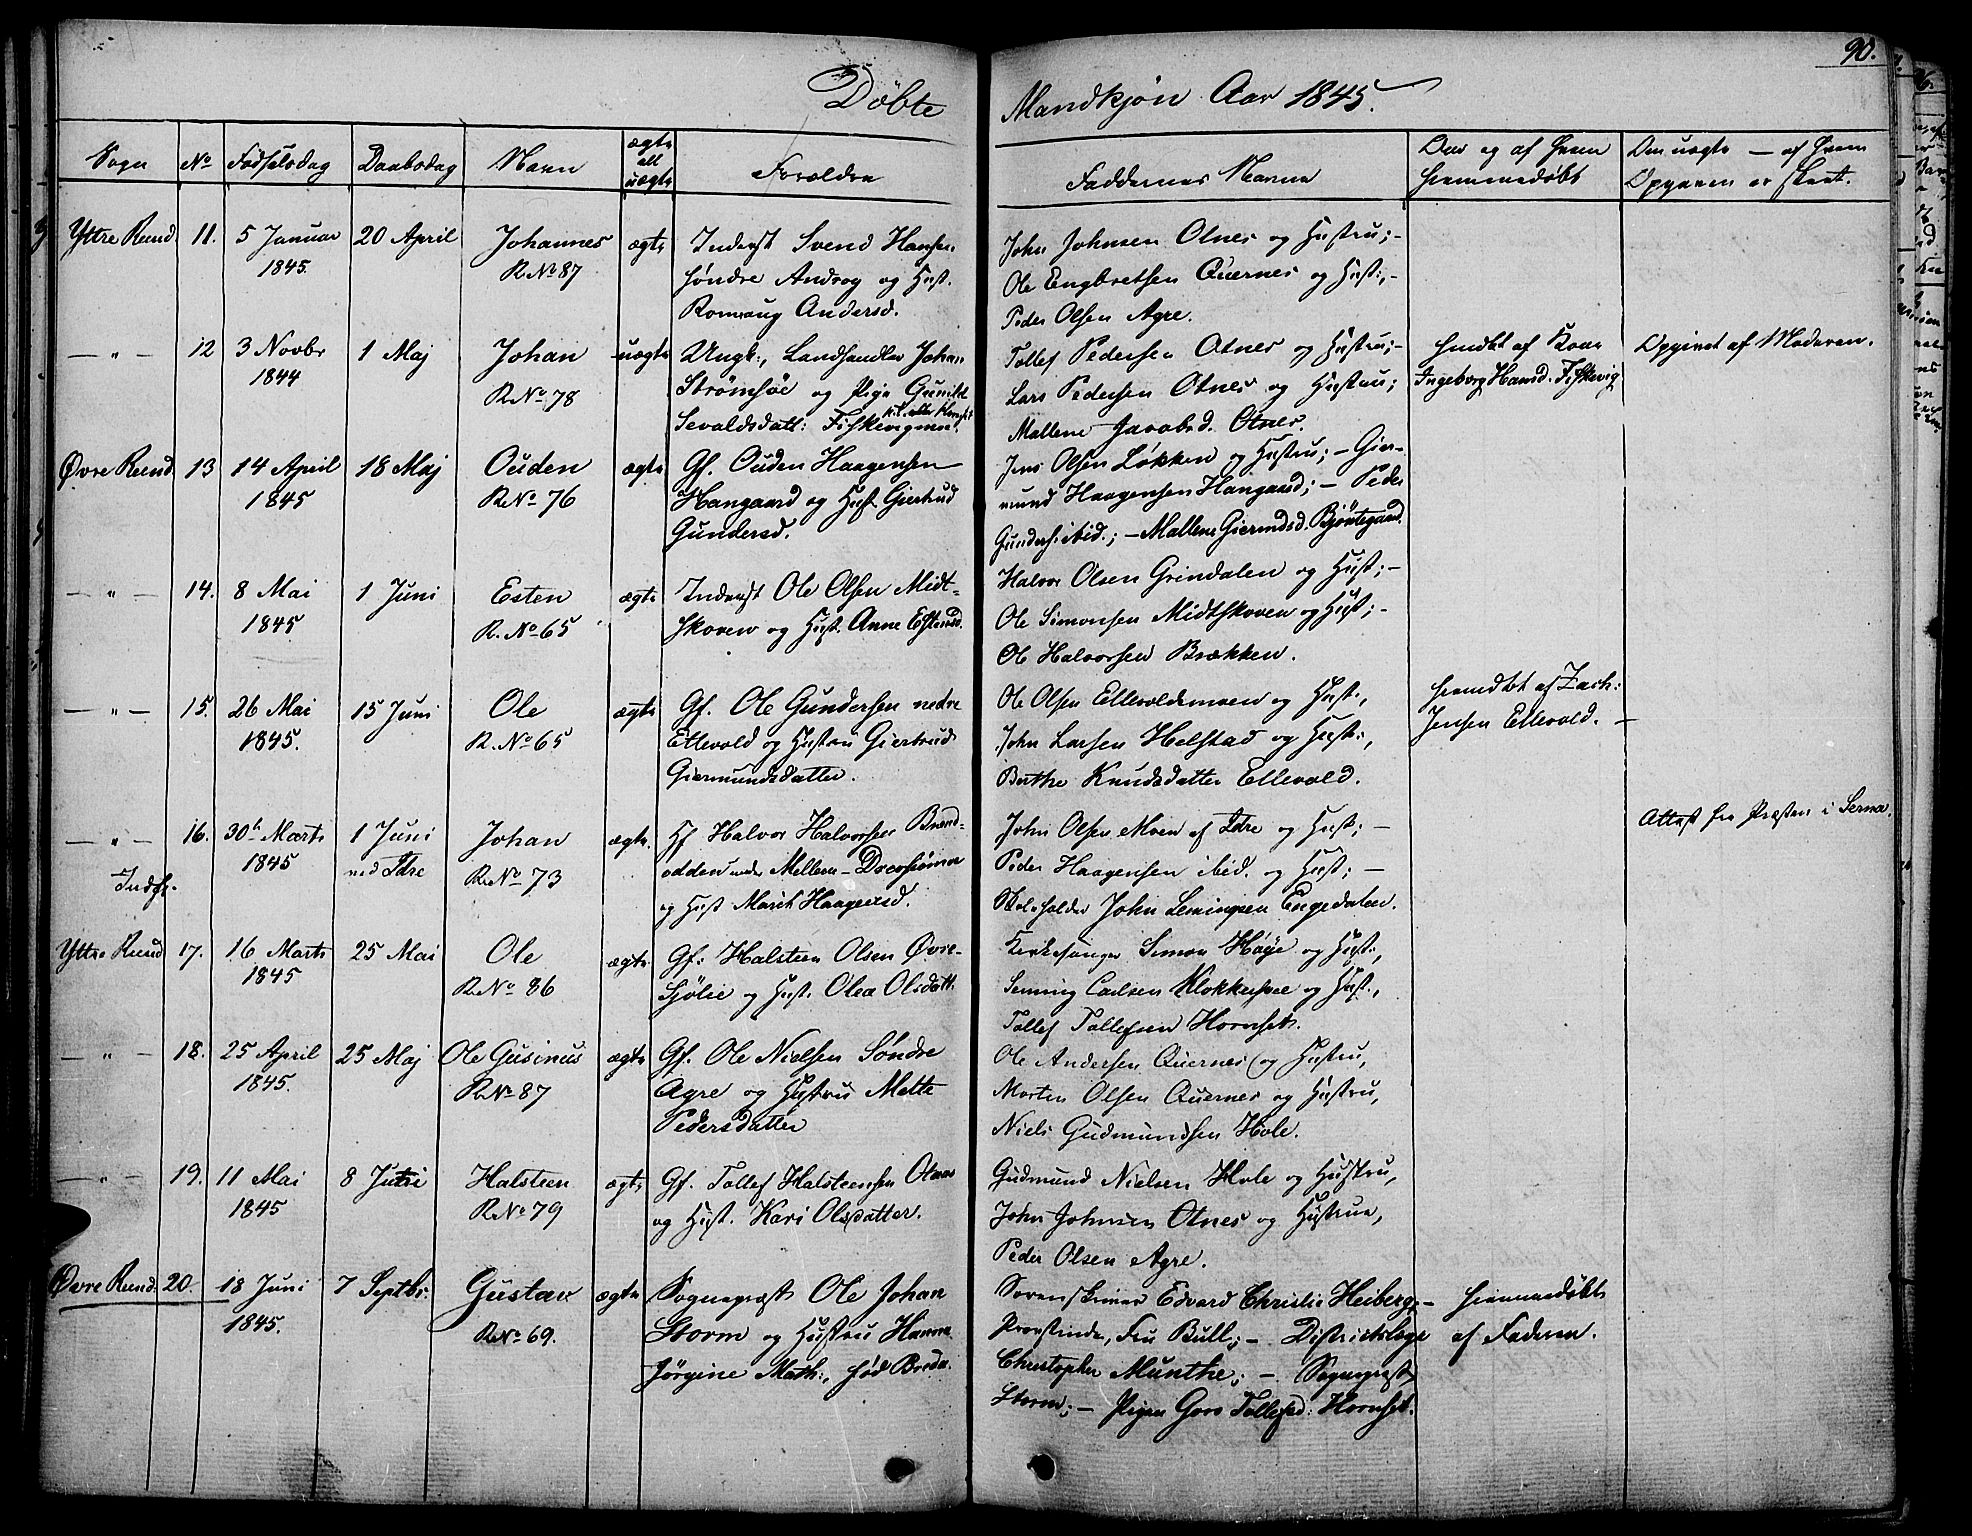 90.
Døbte Mandkjøn Aar 1845.
Sogn No Fødselsdag Daabsdag Navn ægte ell uægte Forældre Faddernes Navne Den og af hvem hjemmedøbt Den uægte — af hvem Opgaven er skeet.
Yttre Rend. 11. 5 Januar 1845. 20 April Johannes R No 87 ægte Inderst Svend Hansen
Søndre Androg og Hust.
Romaug Andersd.
John Johnsen Otnes og Hustru;-
Ole Engbretsen Quernes og Hust:,-
Peder Olsen Agre.
—"— 12 3 Novbr 1844 1 Maj Johan R No 78 uægte Ungk:, Landhandler Johan
Strømsøe og Pige Gunild
Sevaldsdatt: Fiskevigmoen.
Tollef Pedersen Otnes og Hustru;-
Lars Pedersen Otnes og Hustru;
Mallene Jacobsd. Otnes.
hmdbt af Kone
Ingeborg Hansd. Fiskevig
Opgivet af Moderen.
Øvre Rend. 13 14 April 1845 18 Maj Ouden R No 76 ægte Gf. Ouden Haagensen
Hangaard og Hust. Giertrud
Gundersd.
Jens Olsen Løkken og Hustru; - Gier-
mund Haagensen Hangaard; - Peder
Gunders. ibid.; - Mallene Giermdsd. Bjøntegaard.
—"— 14. 8 Mai 1845 1 Juni Esten R. No 65 ægte Inderst Ole Olsen Midt-
skoven og Hust. Anne Estensd.
Halvor Olsen Grindalen og Hust;-
Ole Simonsen Midtskoven og Hust;-
Ole Halvorsen Brækken.
—"— 15. 26 Mai 1845. 15 Juni Ole R. No 65 ægte Gf. Ole Gundersen nedre
Ellevold og Hustru Giertrud
Giermundsdatter.
Ole Olsen Ellevoldsmoen og Hust.,
John Larsen Helstad og Hust:,
Berthe Knudsdatter Ellevold.
hiemdbt af Zach:
Jensen Ellevold. —
—"— Indst. 16. 30te Marts 1845 1 Juni ved Idre Johan R No 73 ægte. Hf Halvor Halvorsen Brænd-
odden under Mellem-Drevsjømoe
og Hust Marit Haagensd.
John Olsen Moen af Idre og Hust; -
Peder Haagensen ibid. og Hust; -
Skoleholder John Lemingsen Engedalen.
Attest fra Præsten i Serna.
Yttre Rend 17. 16 Marts 1845 25 Mai Ole R No 86 ægte Gf: Halsteen Olsen Øvre-
Sjølie og Hust. Olea Olsdatt.
Kirkesanger Simon Høye og Hust:,
Senning Carlsen Klokkerhoee og Hust.,
Tollef Tollefsen Hornset.
—"— 18. 25 April 1845. 25 Maj Ole Gusinus R No 87 ægte Gf. Ole Nielsen Søndre
Agre og Hustru Mette
Pedersdatter
Ole Andersen Quernes og Hustru,
Morten Olsen Quernes og Hustru,
Niels Gudmundsen Hole.
—"— 19. 11 Mai 1845 8 Juni Halsteen R No 79 ægte Gf. Tollef Halsteensen Otnes
og Hust. Kari Olsdatter.
Gudmund Nielsen Hole og Hustru,
John Johnsen Otnes og Hustrue,
Peder Olsen Agre.
Øvre Rend. 20. 18 Juni 1845. 7 Septbr. Gustav R No 69. ægte Sognepræst Ole Johan
Storm og Hustru Hanna
Jørgine Math:, fød Breda.
Sorenskriver Edvard Christie Heiberg; -
Provstinde, Fru Bull; - Districtslæge
Christopher Munthe; - Sognepræst
Storm; - Pigen Goro Tollefsd: Hornset.
hiemmedøbt
af Faderen.